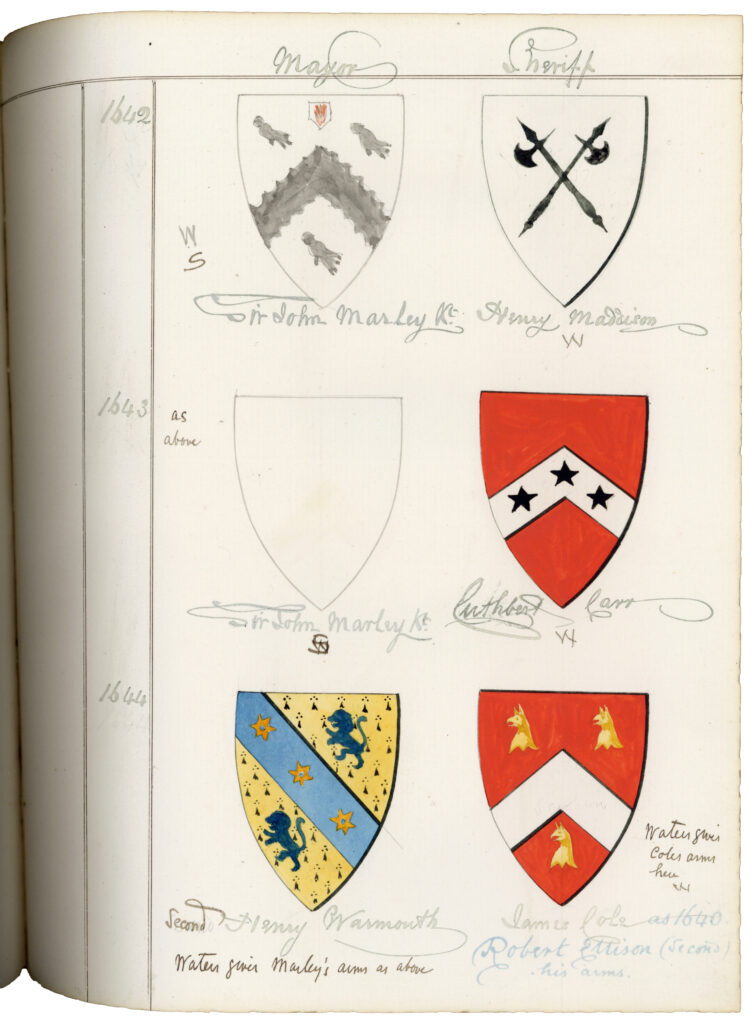 Mayor Sheriff
1642
W
S
Sir John Marley Kt. Henry Maddison
W
1643 as
above
Sir John Marley Kt. Cuthbert Carr
S W
1644
Waters gives
Coles arms
here
W
Second Henry Warmouth James Cole as 1640
Waters gives Marley's arms as above
(Robert Ellison (Second)
his arms.